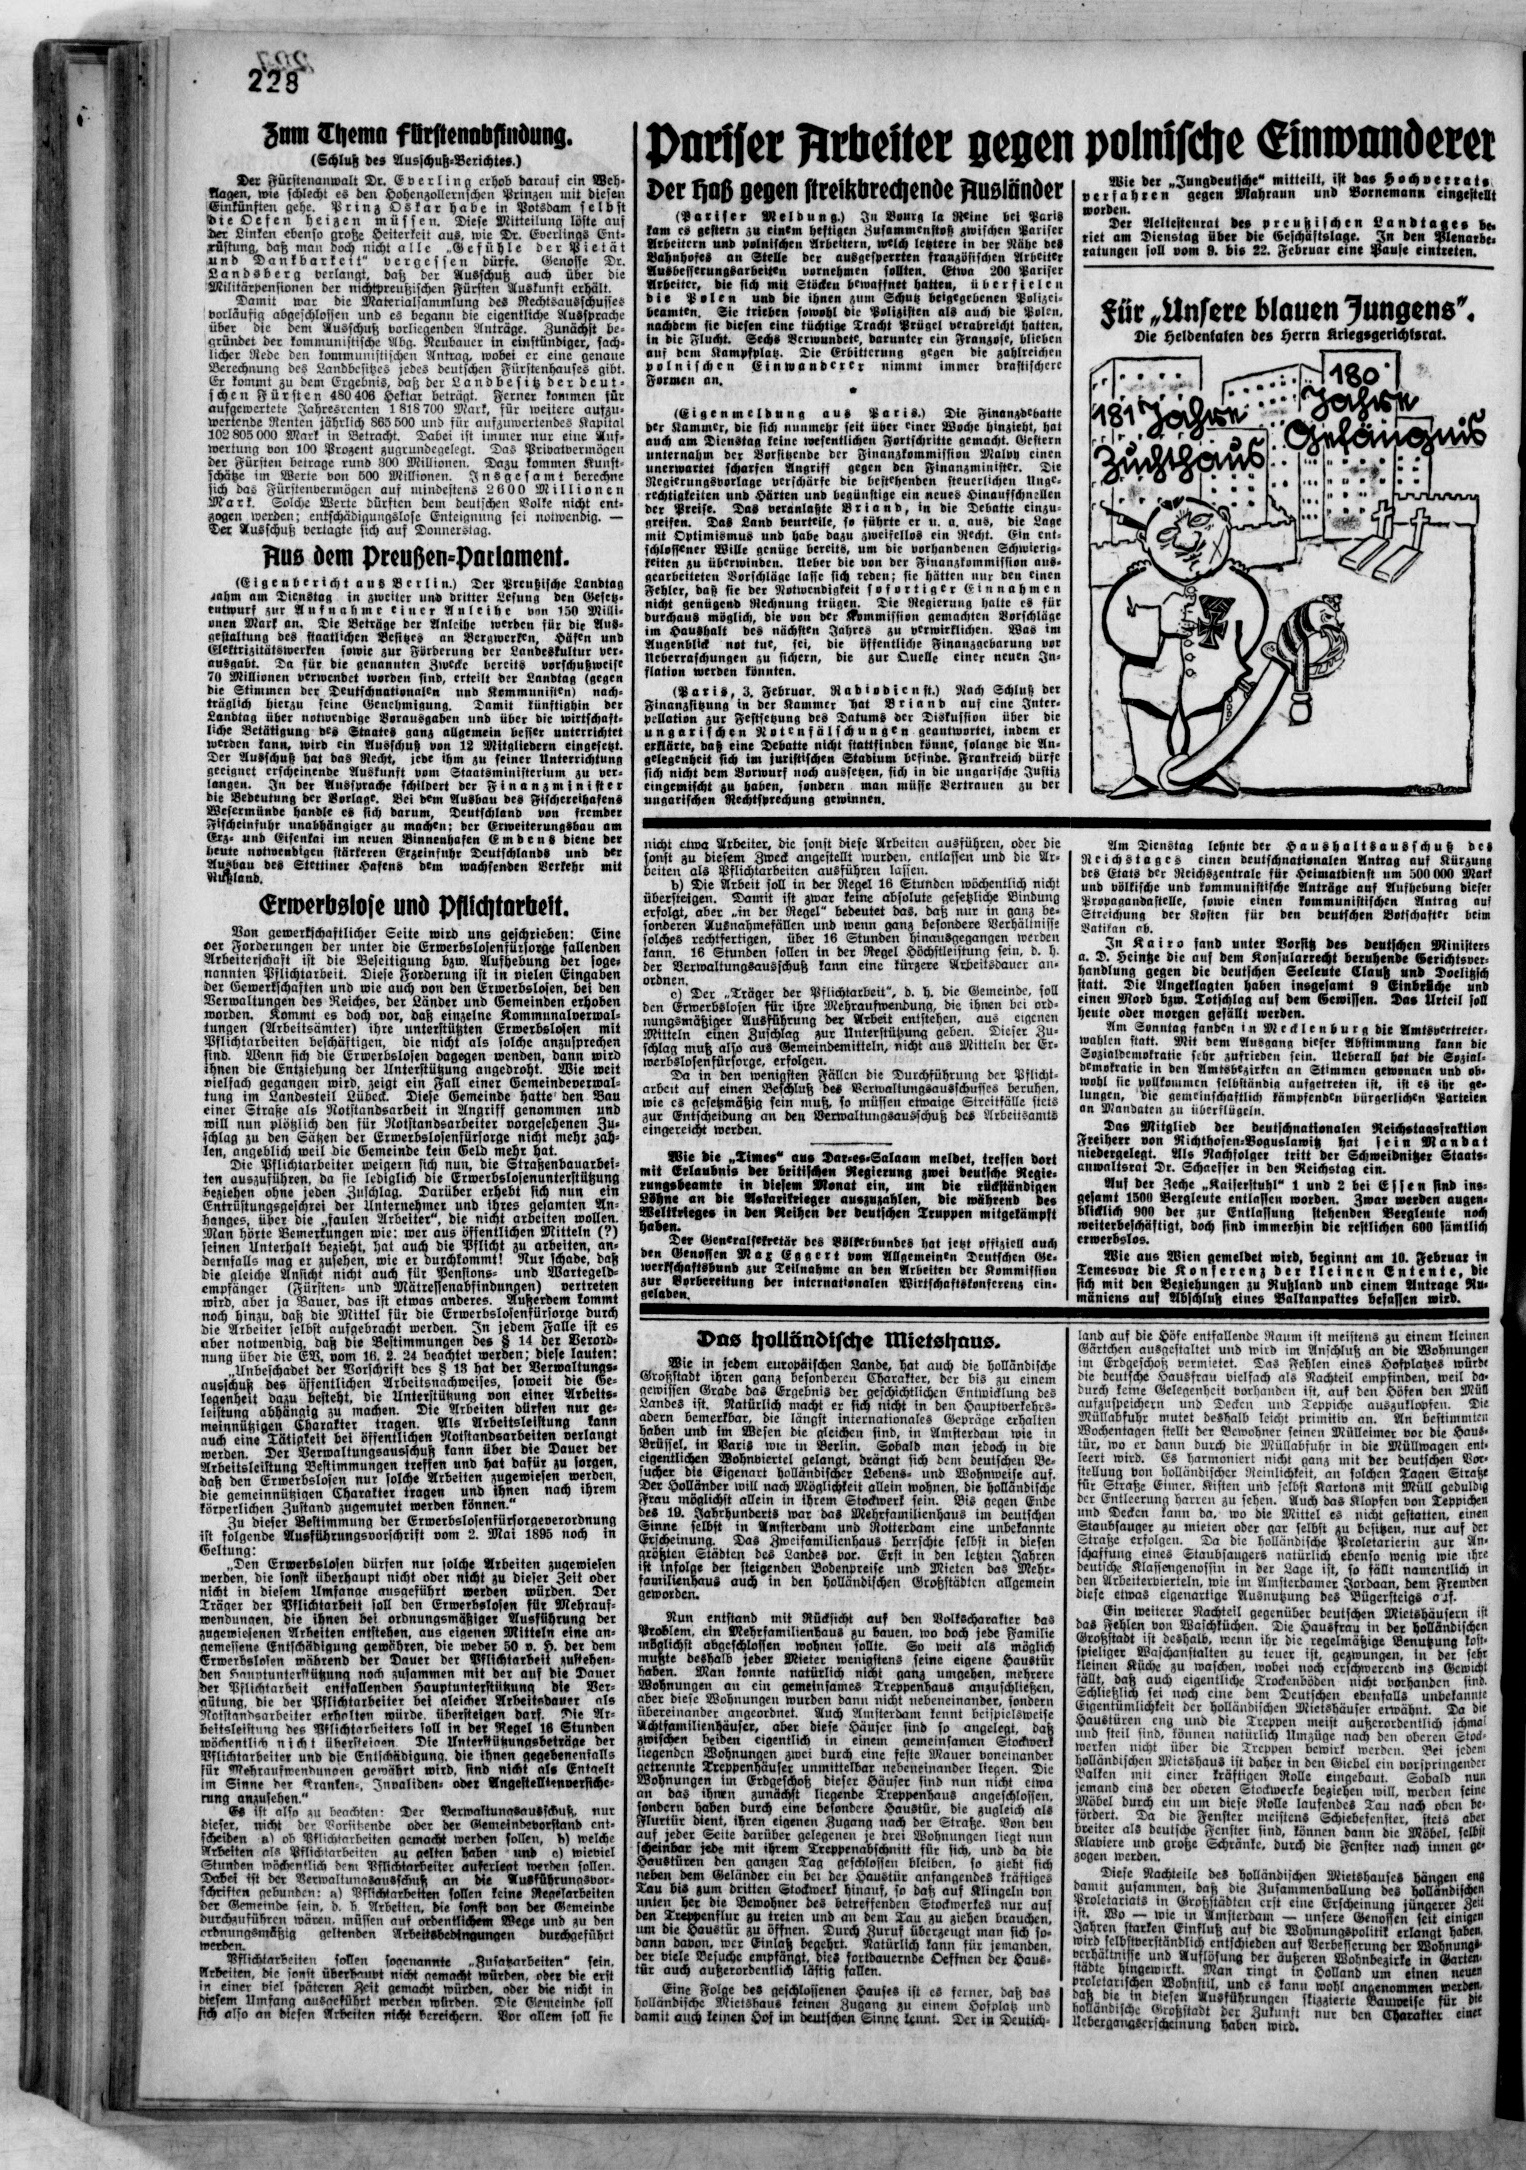 228
Zum Thema Fürstenabfindung.
(Schluß des Ausschuß-Berichtes.)
Der Fürstenanwalt Dr. Everling erhob darauf ein Weh-
klagen, wie schlecht es den Hohenzollernschen Prinzen mit diesen
Einkünften gehe. Prinz Oskar habe in Potsdam selbst
die Oefen heizen müssen. Diese Mitteilung löste auf
der Linken ebenso große Heiterkeit aus, wie Dr. Everlings Ent-
rüstung, daß man doch nicht alle „Gefühle der Pietät
und Dankbarkeit“ vergessen dürfe. Genosse Dr.
Landsberg verlangt, daß der Ausschuß auch über die
Militärpensionen der nichtpreußischen Fürsten Auskunft erhält.
Damit war die Materialsammlung des Rechtsausschusses
vorläufig abgeschlossen und es begann die eigentliche Aussprache
über die dem Ausschuß vorliegenden Anträge. Zunächst be-
gründet der kommunistische Abg. Neubauer in einstündiger, sach-
licher Rede den kommunistischen Antrag, wobei er eine genaue
Berechnung des Landbesitzes jedes deutschen Fürstenhauses gibt.
Er kommt zu dem Ergebnis, daß der Landbesitz der deut-
schen Fürsten 480 406 Hektar beträgt. Ferner kommen für
aufgewertete Jahresrenten 1 818 700 Mark, für weitere aufzu-
wertende Renten jährlich 865 500 und für aufzuwertendes Kapital
102 805 000 Mark in Betracht. Dabei ist immer nur eine Auf-
wertung von 100 Prozent zugrundegelegt. Das Privatvermögen
der Fürsten betrage rund 300 Millionen. Dazu kommen Kunst-
schätze im Werte von 500 Millionen. Insgesamt berechne
sich das Fürstenvermögen auf mindestens 2600 Millionen
Mark. Solche Werte dürften dem deutschen Volke nicht ent-
zogen werden; entschädigungslose Enteignung sei notwendig. —
Der Ausschuß vertagte sich auf Donnerstag.
Aus dem Preußen-Parlament.
(Eigenbericht aus Berlin.) Der Preußische Landtag
nahm am Dienstag in zweiter und dritter Lesung den Gesetz-
entwurf zur Aufnahme einer Anleihe von 150 Milli-
onen Mark an. Die Beträge der Anleihe werden für die Aus-
gestaltung des staatlichen Besitzes an Bergwerken, Häfen und
Elektrizitätswerken sowie zur Förderung der Landeskultur ver-
ausgabt. Da für die genannten Zwecke bereits vorschußweise
70 Millionen verwendet worden sind, erteilt der Landtag (gegen
die Stimmen der Deutschnationalen und Kommunisten) nach-
träglich hierzu seine Genehmigung. Damit künftighin der
Landtag über notwendige Vorausgaben und über die wirtschaft-
liche Betätigung des Staates ganz allgemein besser unterrichtet
werden kann, wird ein Ausschuß von 12 Mitgliedern eingesetzt.
Der Ausschuß hat das Recht, jede ihm zu seiner Unterrichtung
geeignet erscheinende Auskunft vom Staatsministerium zu ver-
langen. In der Aussprache schildert der Finanzminister
die Bedeutung der Vorlage. Bei dem Ausbau des Fischereihafens
Wesermünde handle es sich darum, Deutschland von fremder
Fischeinfuhr unabhängiger zu machen; der Erweiterungsbau am
Erz- und Eisenkai im neuen Binnenhafen Emdens diene der
heute notwendigen stärkeren Erzeinfuhr Deutschlands und der
Ausbau des Stettiner Hafens dem wachsenden Verkehr mit
Rußland.
Erwerbslose und Pflichtarbeit.
Von gewerkschaftlicher Seite wird uns geschrieben: Eine
der Forderungen der unter die Erwerbslosenfürsorge fallenden
Arbeiterschaft ist die Beseitigung bzw. Aufhebung der soge-
nannten Pflichtarbeit. Diese Forderung ist in vielen Eingaben
der Gewerkschaften und wie auch von den Erwerbslosen, bei den
Verwaltungen des Reiches, der Länder und Gemeinden erhoben
worden. Kommt es doch vor, daß einzelne Kommunalverwal-
tungen (Arbeitsämter) ihre unterstützten Erwerbslosen mit
Pflichtarbeiten beschäftigen, die nicht als solche anzusprechen
sind. Wenn sich die Erwerbslosen dagegen wenden, dann wird
ihnen die Entziehung der Unterstützung angedroht. Wie weit
vielfach gegangen wird, zeigt ein Fall einer Gemeindeverwal-
tung im Landesteil Lübeck. Diese Gemeinde hatte den Bau
einer Straße als Notstandsarbeit in Angriff genommen und
will nun plötzlich den für Notstandsarbeiter vorgesehenen Zu-
schlag zu den Sätzen der Erwerbslosenfürsorge nicht mehr zah-
len, angeblich weil die Gemeinde kein Geld mehr hat.
Die Pflichtarbeiter weigern sich nun, die Straßenbauarbei-
ten auszuführen, da sie lediglich die Erwerbslosenunterstützung
beziehen ohne jeden Zuschlag. Darüber erhebt sich nun ein
Entrüstungsgeschrei der Unternehmer und ihres gesamten An-
hanges, über die „faulen Arbeiter“, die nicht arbeiten wollen.
Man hörte Bemerkungen wie: wer aus öffentlichen Mitteln (?)
seinen Unterhalt bezieht, hat auch die Pflicht zu arbeiten, an-
dernfalls mag er zusehen, wie er durchkommt! Nur schade, daß
die gleiche Ansicht nicht auch für Pensions- und Wartegeld-
empfänger (Fürsten- und Mätressenabfindungen) vertreten
wird, aber ja Bauer, das ist etwas anderes. Außerdem kommt
noch hinzu, daß die Mittel für die Erwerbslosenfürsorge durch
die Arbeiter selbst aufgebracht werden. In jedem Falle ist es
aber notwendig, daß die Bestimmungen des § 14 der Verord-
nung über die EV. vom 16. 2. 24 beachtet werden; diese lauten:
„Unbeschadet der Vorschrift des § 13 hat der Verwaltungs-
ausschuß des öffentlichen Arbeitsnachweises, soweit die Ge-
legenheit dazu besteht, die Unterstützung von einer Arbeits-
leistung abhängig zu machen. Die Arbeiten dürfen nur ge-
meinnützigen Charakter tragen. Als Arbeitsleistung kann
auch eine Tätigkeit bei öffentlichen Notstandsarbeiten verlangt
werden. Der Verwaltungsausschuß kann über die Dauer der
Arbeitsleistung Bestimmungen treffen und hat dafür zu sorgen,
daß den Erwerbslosen nur solche Arbeiten zugewiesen werden,
die gemeinnützigen Charakter tragen und ihnen nach ihrem
körperlichen Zustand zugemutet werden können.“
Zu dieser Bestimmung der Erwerbslosenfürsorgeverordnung
ist folgende Ausführungsvorschrift vom 2. Mai 1895 noch in
Geltung:
„Den Erwerbslosen dürfen nur solche Arbeiten zugewiesen
werden, die sonst überhaupt nicht oder nicht zu dieser Zeit oder
nicht in diesem Umfange ausgeführt werden würden. Der
Träger der Pflichtarbeit soll den Erwerbslosen für Mehrauf-
wendungen, die ihnen bei ordnungsmäßiger Ausführung der
zugewiesenen Arbeiten entstehen, aus eigenen Mitteln eine an-
gemessene Entschädigung gewähren, die weder 50 v. H. der dem
Erwerbslosen während der Dauer der Pflichtarbeit zustehen-
den Hauptunterstützung noch zusammen mit der auf die Dauer
der Pflichtarbeit entfallenden Hauptunterstützung die Ver-
gütung, die der Pflichtarbeiter bei gleicher Arbeitsdauer als
Notstandsarbeiter erhalten würde, übersteigen darf. Die Ar-
beitsleistung des Pflichtarbeiters soll in der Regel 16 Stunden
wöchentlich nicht übersteigen. Die Unterstützungsbeträge der
Pflichtarbeiter und die Entschädigung, die ihnen gegebenenfalls
für Mehraufwendungen gewährt wird, sind nicht als Entgelt
im Sinne der Kranken-, Invaliden- oder Angestelltenversiche-
rung anzusehen.“
Es ist also zu beachten: Der Verwaltungsausschuß, nur
dieser, nicht der Vorsitzende oder der Gemeindevorstand ent-
scheiden a) ob Pflichtarbeiten gemacht werden sollen, b) welche
Arbeiten als Pflichtarbeiten zu gelten haben und c) wieviel
Stunden wöchentlich dem Pflichtarbeiter auferlegt werden sollen.
Dabei ist der Verwaltungsausschuß an die Ausführungsvor-
schriften gebunden: a) Pflichtarbeiten sollen keine Regelarbeiten
der Gemeinde sein, d. h. Arbeiten, die sonst von der Gemeinde
durchzuführen wären, müssen auf ordentlichem Wege und zu den
ordnungsmäßig geltenden Arbeitsbedingungen durchgeführt
werden.
Pflichtarbeiten sollen sogenannte „Zusatzarbeiten“ sein,
Arbeiten, die sonst überhaupt nicht gemacht würden, oder die erst
in einer viel späteren Zeit gemacht würden, oder die nicht in
diesem Umfang ausgeführt werden würden. Die Gemeinde soll
sich also an diesen Arbeiten nicht bereichern. Vor allem soll sie
Pariser Arbeiter gegen polnische Einwanderer
Der Haß gegen streikbrechende Ausländer
(Pariser Meldung.) In Bourg la Reine bei Paris
kam es gestern zu einem heftigen Zusammenstoß zwischen Pariser
Arbeitern und polnischen Arbeitern, welch letztere in der Nähe des
Bahnhofes an Stelle der ausgesperrten französischen Arbeiter
Ausbesserungsarbeiten vornehmen sollten. Etwa 200 Pariser
Arbeiter, die sich mit Stöcken bewaffnet hatten, überfielen
die Polen und die ihnen zum Schutz beigegebenen Polizei-
beamten. Sie trieben sowohl die Polizisten als auch die Polen,
nachdem sie diesen eine tüchtige Tracht Prügel verabreicht hatten,
in die Flucht. Sechs Verwundete, darunter ein Franzose, blieben
auf dem Kampfplatz. Die Erbitterung gegen die zahlreichen
polnischen Einwanderer nimmt immer drastischere
Formen an.
*
(Eigenmeldung aus Paris.) Die Finanzdebatte
der Kammer, die sich nunmehr seit über einer Woche hinzieht, hat
auch am Dienstag keine wesentlichen Fortschritte gemacht. Gestern
unternahm der Vorsitzende der Finanzkommission Malvy einen
unerwartet scharfen Angriff gegen den Finanzminister. Die
Regierungsvorlage verschärfe die bestehenden steuerlichen Unge-
rechtigkeiten und Härten und begünstige ein neues Hinaufschnellen
der Preise. Das veranlaßte Briand, in die Debatte einzu-
greifen. Das Land beurteile, so führte er u. a. aus, die Lage
mit Optimismus und habe dazu zweifellos ein Recht. Ein ent-
schlossener Wille genüge bereits, um die vorhandenen Schwierig-
keiten zu überwinden. Ueber die von der Finanzkommission aus-
gearbeiteten Vorschläge lasse sich reden; sie hätten nur den einen
Fehler, daß sie der Notwendigkeit sofortiger Einnahmen
nicht genügend Rechnung trügen. Die Regierung halte es für
durchaus möglich, die von der Kommission gemachten Vorschläge
im Haushalt des nächsten Jahres zu verwirklichen. Was im
Augenblick not tue, sei, die öffentliche Finanzgebarung vor
Ueberraschungen zu sichern, die zur Quelle einer neuen In-
flation werden könnten.
(Paris, 3. Februar. Radiodienst.) Nach Schluß der
Finanzsitzung in der Kammer hat Briand auf eine Inter-
pellation zur Festsetzung des Datums der Diskussion über die
ungarischen Notenfälschungen geantwortet, indem er
erklärte, daß eine Debatte nicht stattfinden könne, solange die An-
gelegenheit sich im juristischen Stadium befinde. Frankreich dürfe
sich nicht dem Vorwurf noch aussetzen, sich in die ungarische Justiz
eingemischt zu haben, sondern man müsse Vertrauen zu der
ungarischen Rechtsprechung gewinnen.
Wie der „Jungdeutsche“ mitteilt, ist das Hochverrats-
verfahren gegen Mahraun und Bornemann eingestellt
worden.
Der Aeltestenrat des preußischen Landtages be-
riet am Dienstag über die Geschäftslage. In den Plenarbe-
ratungen soll vom 9. bis 22. Februar eine Pause eintreten.
Für „Unsere blauen Jungens“.
Die Heldentaten des Herrn Kriegsgerichtsrat.
181 Jahre
Zuchthaus
180
Jahre
Gefängnis
nicht etwa Arbeiter, die sonst diese Arbeiten ausführen, oder die
sonst zu diesem Zweck angestellt wurden, entlassen und die Ar-
beiten als Pflichtarbeiten ausführen lassen.
b) Die Arbeit soll in der Regel 16 Stunden wöchentlich nicht
übersteigen. Damit ist zwar keine absolute gesetzliche Bindung
erfolgt, aber „in der Regel“ bedeutet das, daß nur in ganz be-
sonderen Ausnahmefällen und wenn ganz besondere Verhältnisse
solches rechtfertigen, über 16 Stunden hinausgegangen werden
kann. 16 Stunden sollen in der Regel Höchstleistung sein, d. h.
der Verwaltungsausschuß kann eine kürzere Arbeitsdauer an-
ordnen.
c) Der „Träger der Pflichtarbeit“, d. h. die Gemeinde, soll
den Erwerbslosen für ihre Mehraufwendung, die ihnen bei ord-
nungsmäßiger Ausführung der Arbeit entstehen, aus eigenen
Mitteln einen Zuschlag zur Unterstützung geben. Dieser Zu-
schlag muß also aus Gemeindemitteln, nicht aus Mitteln der Er-
werbslosenfürsorge, erfolgen.
Da in den wenigsten Fällen die Durchführung der Pflicht-
arbeit auf einen Beschluß des Verwaltungsausschusses beruhen,
wie es gesetzmäßig sein muß, so müssen etwaige Streitfälle stets
zur Entscheidung an den Verwaltungsausschuß des Arbeitsamts
eingereicht werden.
Wie die „Times“ aus Dar-es-Salaam meldet, treffen dort
mit Erlaubnis der britischen Regierung zwei deutsche Regie-
rungsbeamte in diesem Monat ein, um die rückständigen
Löhne an die Askarikrieger auszuzahlen, die während des
Weltkrieges in den Reihen der deutschen Truppen mitgekämpft
haben.
Der Generalsekretär des Völkerbundes hat jetzt offiziell auch
den Genossen Max Eggert vom Allgemeinen Deutschen Ge-
werkschaftsbund zur Teilnahme an den Arbeiten der Kommission
zur Vorbereitung der internationalen Wirtschaftskonferenz ein-
geladen.
Am Dienstag lehnte der Haushaltsausschuß des
Reichstages einen deutschnationalen Antrag auf Kürzung
des Etats der Reichszentrale für Heimatdienst um 500 000 Mark
und völkische und kommunistische Anträge auf Aufhebung dieser
Propagandastelle, sowie einen kommunistischen Antrag auf
Streichung der Kosten für den deutschen Botschafter beim
Vatikan ab.
In Kairo fand unter Vorsitz des deutschen Ministers
a. D. Heintze die auf dem Konsularrecht beruhende Gerichtsver-
handlung gegen die deutschen Seeleute Clauß und Doelitzsch
statt. Die Angeklagten haben insgesamt 9 Einbrüche und
einen Mord bzw. Totschlag auf dem Gewissen. Das Urteil soll
heute oder morgen gefällt werden.
Am Sonntag fanden in Mecklenburg die Amtsvertreter-
wahlen statt. Mit dem Ausgang dieser Abstimmung kann die
Sozialdemokratie sehr zufrieden sein. Ueberall hat die Sozial-
demokratie in den Amtsbezirken an Stimmen gewonnen und ob-
wohl sie vollkommen selbständig aufgetreten ist, ist es ihr ge-
lungen, die gemeinschaftlich kämpfenden bürgerlichen Parteien
an Mandaten zu überflügeln.
Das Mitglied der deutschnationalen Reichstagsfraktion
Freiherr von Richthofen-Boguslawitz hat sein Mandat
niedergelegt. Als Nachfolger tritt der Schweidnitzer Staats-
anwaltsrat Dr. Schaeffer in den Reichstag ein.
Auf der Zeche „Kaiserstuhl“ 1 und 2 bei Essen sind ins-
gesamt 1500 Bergleute entlassen worden. Zwar werden augen-
blicklich 900 der zur Entlassung stehenden Bergleute noch
weiterbeschäftigt, doch sind immerhin die restlichen 600 sämtlich
erwerbslos.
Wie aus Wien gemeldet wird, beginnt am 10. Februar in
Temesvar die Konferenz der kleinen Entente, die
sich mit den Beziehungen zu Rußland und einem Antrage Ru-
mäniens auf Abschluß eines Balkanpaktes befassen wird.
Das holländische Mietshaus.
Wie in jedem europäischen Lande, hat auch die holländische
Großstadt ihren ganz besonderen Charakter, der bis zu einem
gewissen Grade das Ergebnis der geschichtlichen Entwicklung des
Landes ist. Natürlich macht er sich nicht in den Hauptverkehrs-
adern bemerkbar, die längst internationales Gepräge erhalten
haben und im Wesen die gleichen sind, in Amsterdam wie in
Brüssel, in Paris wie in Berlin. Sobald man jedoch in die
eigentlichen Wohnviertel gelangt, drängt sich dem deutschen Be-
sucher die Eigenart holländischer Lebens- und Wohnweise auf.
Der Holländer will nach Möglichkeit allein wohnen, die holländische
Frau möglichst allein in ihrem Stockwerk sein. Bis gegen Ende
des 19. Jahrhunderts war das Mehrfamilienhaus im deutschen
Sinne selbst in Amsterdam und Rotterdam eine unbekannte
Erscheinung. Das Zweifamilienhaus herrschte selbst in diesen
größten Städten des Landes vor. Erst in den letzten Jahren
ist infolge der steigenden Bodenpreise und Mieten das Mehr-
familienhaus auch in den holländischen Großstädten allgemein
geworden.
Nun entstand mit Rücksicht auf den Volkscharakter das
Problem, ein Mehrfamilienhaus zu bauen, wo doch jede Familie
möglichst abgeschlossen wohnen sollte. So weit als möglich
mußte deshalb jeder Mieter wenigstens seine eigene Haustür
haben. Man konnte natürlich nicht ganz umgehen, mehrere
Wohnungen an ein gemeinsames Treppenhaus anzuschließen,
aber diese Wohnungen wurden dann nicht nebeneinander, sondern
übereinander angeordnet. Auch Amsterdam kennt beispielsweise
Achtfamilienhäuser, aber diese Häuser sind so angelegt, daß
zwischen beiden eigentlich in einem gemeinsamen Stockwerk
liegenden Wohnungen zwei durch eine feste Mauer voneinander
getrennte Treppenhäuser unmittelbar nebeneinander liegen. Die
Wohnungen im Erdgeschoß dieser Häuser sind nun nicht etwa
an das ihnen zunächst liegende Treppenhaus angeschlossen,
sondern haben durch eine besondere Haustür, die zugleich als
Flurtür dient, ihren eigenen Zugang nach der Straße. Von den
auf jeder Seite darüber gelegenen je drei Wohnungen liegt nun
scheinbar jede mit ihrem Treppenabschnitt für sich, und da die
Haustüren den ganzen Tag geschlossen bleiben, so zieht sich
neben dem Geländer ein bei der Haustür anfangendes kräftiges
Tau bis zum dritten Stockwerk hinauf, so daß auf Klingeln von
unten her die Bewohner des betreffenden Stockwerkes nur auf
den Treppenflur zu treten und an dem Tau zu ziehen brauchen,
um die Haustür zu öffnen. Durch Zuruf überzeugt man sich so-
dann davon, wer Einlaß begehrt. Natürlich kann für jemanden,
der viele Besuche empfängt, dies fortdauernde Oeffnen der Haus-
tür auch außerordentlich lästig fallen.
Eine Folge des geschlossenen Hauses ist es ferner, daß das
holländische Mietshaus keinen Zugang zu einem Hofplatz und
damit auch keinen Hof im deutschen Sinne kennt. Der in Deutsch-
land auf die Höfe entfallende Raum ist meistens zu einem kleinen
Gärtchen ausgestaltet und wird im Anschluß an die Wohnungen
im Erdgeschoß vermietet. Das Fehlen eines Hofplatzes würde
die deutsche Hausfrau vielfach als Nachteil empfinden, weil da-
durch keine Gelegenheit vorhanden ist, auf den Höfen den Müll
aufzuspeichern und Decken und Teppiche auszuklopfen. Die
Müllabfuhr mutet deshalb leicht primitiv an. An bestimmten
Wochentagen stellt der Bewohner seinen Mülleimer vor die Haus-
tür, wo er dann durch die Müllabfuhr in die Müllwagen ent-
leert wird. Es harmoniert nicht ganz mit der deutschen Vor-
stellung von holländischer Reinlichkeit, an solchen Tagen Straße
für Straße Eimer, Kisten und selbst Kartons mit Müll geduldig
der Entleerung harren zu sehen. Auch das Klopfen von Teppichen
und Decken kann da, wo die Mittel es nicht gestatten, einen
Staubsauger zu mieten oder gar selbst zu besitzen, nur auf der
Straße erfolgen. Da die holländische Proletarierin zur An-
schaffung eines Staubsaugers natürlich ebenso wenig wie ihre
deutsche Klassengenossin in der Lage ist, so fällt namentlich in
den Arbeitervierteln, wie im Amsterdamer Jordaan, dem Fremden
diese etwas eigenartige Ausnutzung des Bügersteigs auf.
Ein weiterer Nachteil gegenüber deutschen Mietshäusern ist
das Fehlen von Waschküchen. Die Hausfrau in der holländischen
Großstadt ist deshalb, wenn ihr die regelmäßige Benutzung kost-
spieliger Waschanstalten zu teuer ist, gezwungen, in der sehr
kleinen Küche zu waschen, wobei noch erschwerend ins Gewicht
fällt, daß auch eigentliche Trockenböden nicht vorhanden sind.
Schließlich sei noch eine dem Deutschen ebenfalls unbekannte
Eigentümlichkeit der holländischen Mietshäuser erwähnt. Da die
Haustüren eng und die Treppen meist außerordentlich schmal
und steil sind, können natürlich Umzüge nach den oberen Stock-
werken nicht über die Treppen bewirkt werden. Bei jedem
holländischen Mietshaus ist daher in den Giebel ein vorspringender
Balken mit einer kräftigen Rolle eingebaut. Sobald nun
jemand eins der oberen Stockwerke beziehen will, werden seine
Möbel durch ein um diese Rolle laufendes Tau nach oben be-
fördert. Da die Fenster meistens Schiebefenster, stets aber
breiter als deutsche Fenster sind, können dann die Möbel, selbst
Klaviere und große Schränke, durch die Fenster nach innen ge-
zogen werden.
Diese Nachteile des holländischen Mietshauses hängen eng
damit zusammen, daß die Zusammenballung des holländischen
Proletariats in Großstädten erst eine Erscheinung jüngerer Zeit
ist. Wo — wie in Amsterdam — unsere Genossen seit einigen
Jahren starken Einfluß auf die Wohnungspolitik erlangt haben,
wird selbstverständlich entschieden auf Verbesserung der Wohnungs-
verhältnisse und Auflösung der äußeren Wohnbezirke in Garten-
städte hingewirkt. Man ringt in Holland um einen neuen
proletarischen Wohnstil, und es kann wohl angenommen werden,
daß die in diesen Ausführungen skizzierte Bauweise für die
holländische Großstadt der Zukunft nur den Charakter einer
Uebergangserscheinung haben wird.